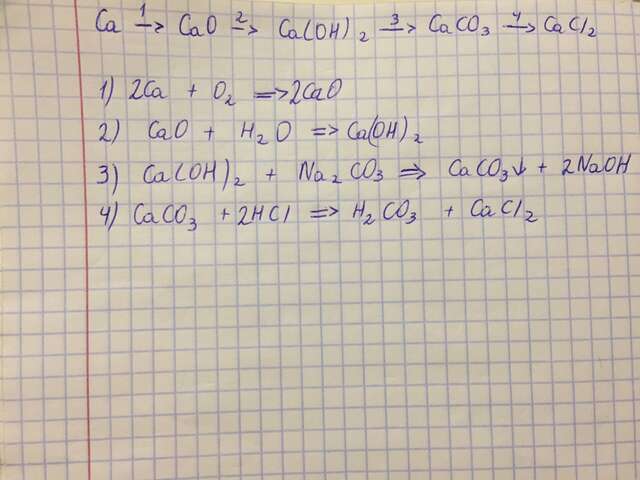 Ca 1→ CaO 2→ Ca(OH)₂ 3→ CaCO₃ 4→ CaCl₂
1) 2Ca + O₂ => 2CaO
2) CaO + H₂O => Ca(OH)₂
3) Ca(OH)₂ + Na₂CO₃ => CaCO₃↓ + 2NaOH
4) CaCO₃ + 2HCl => H₂CO₃ + CaCl₂